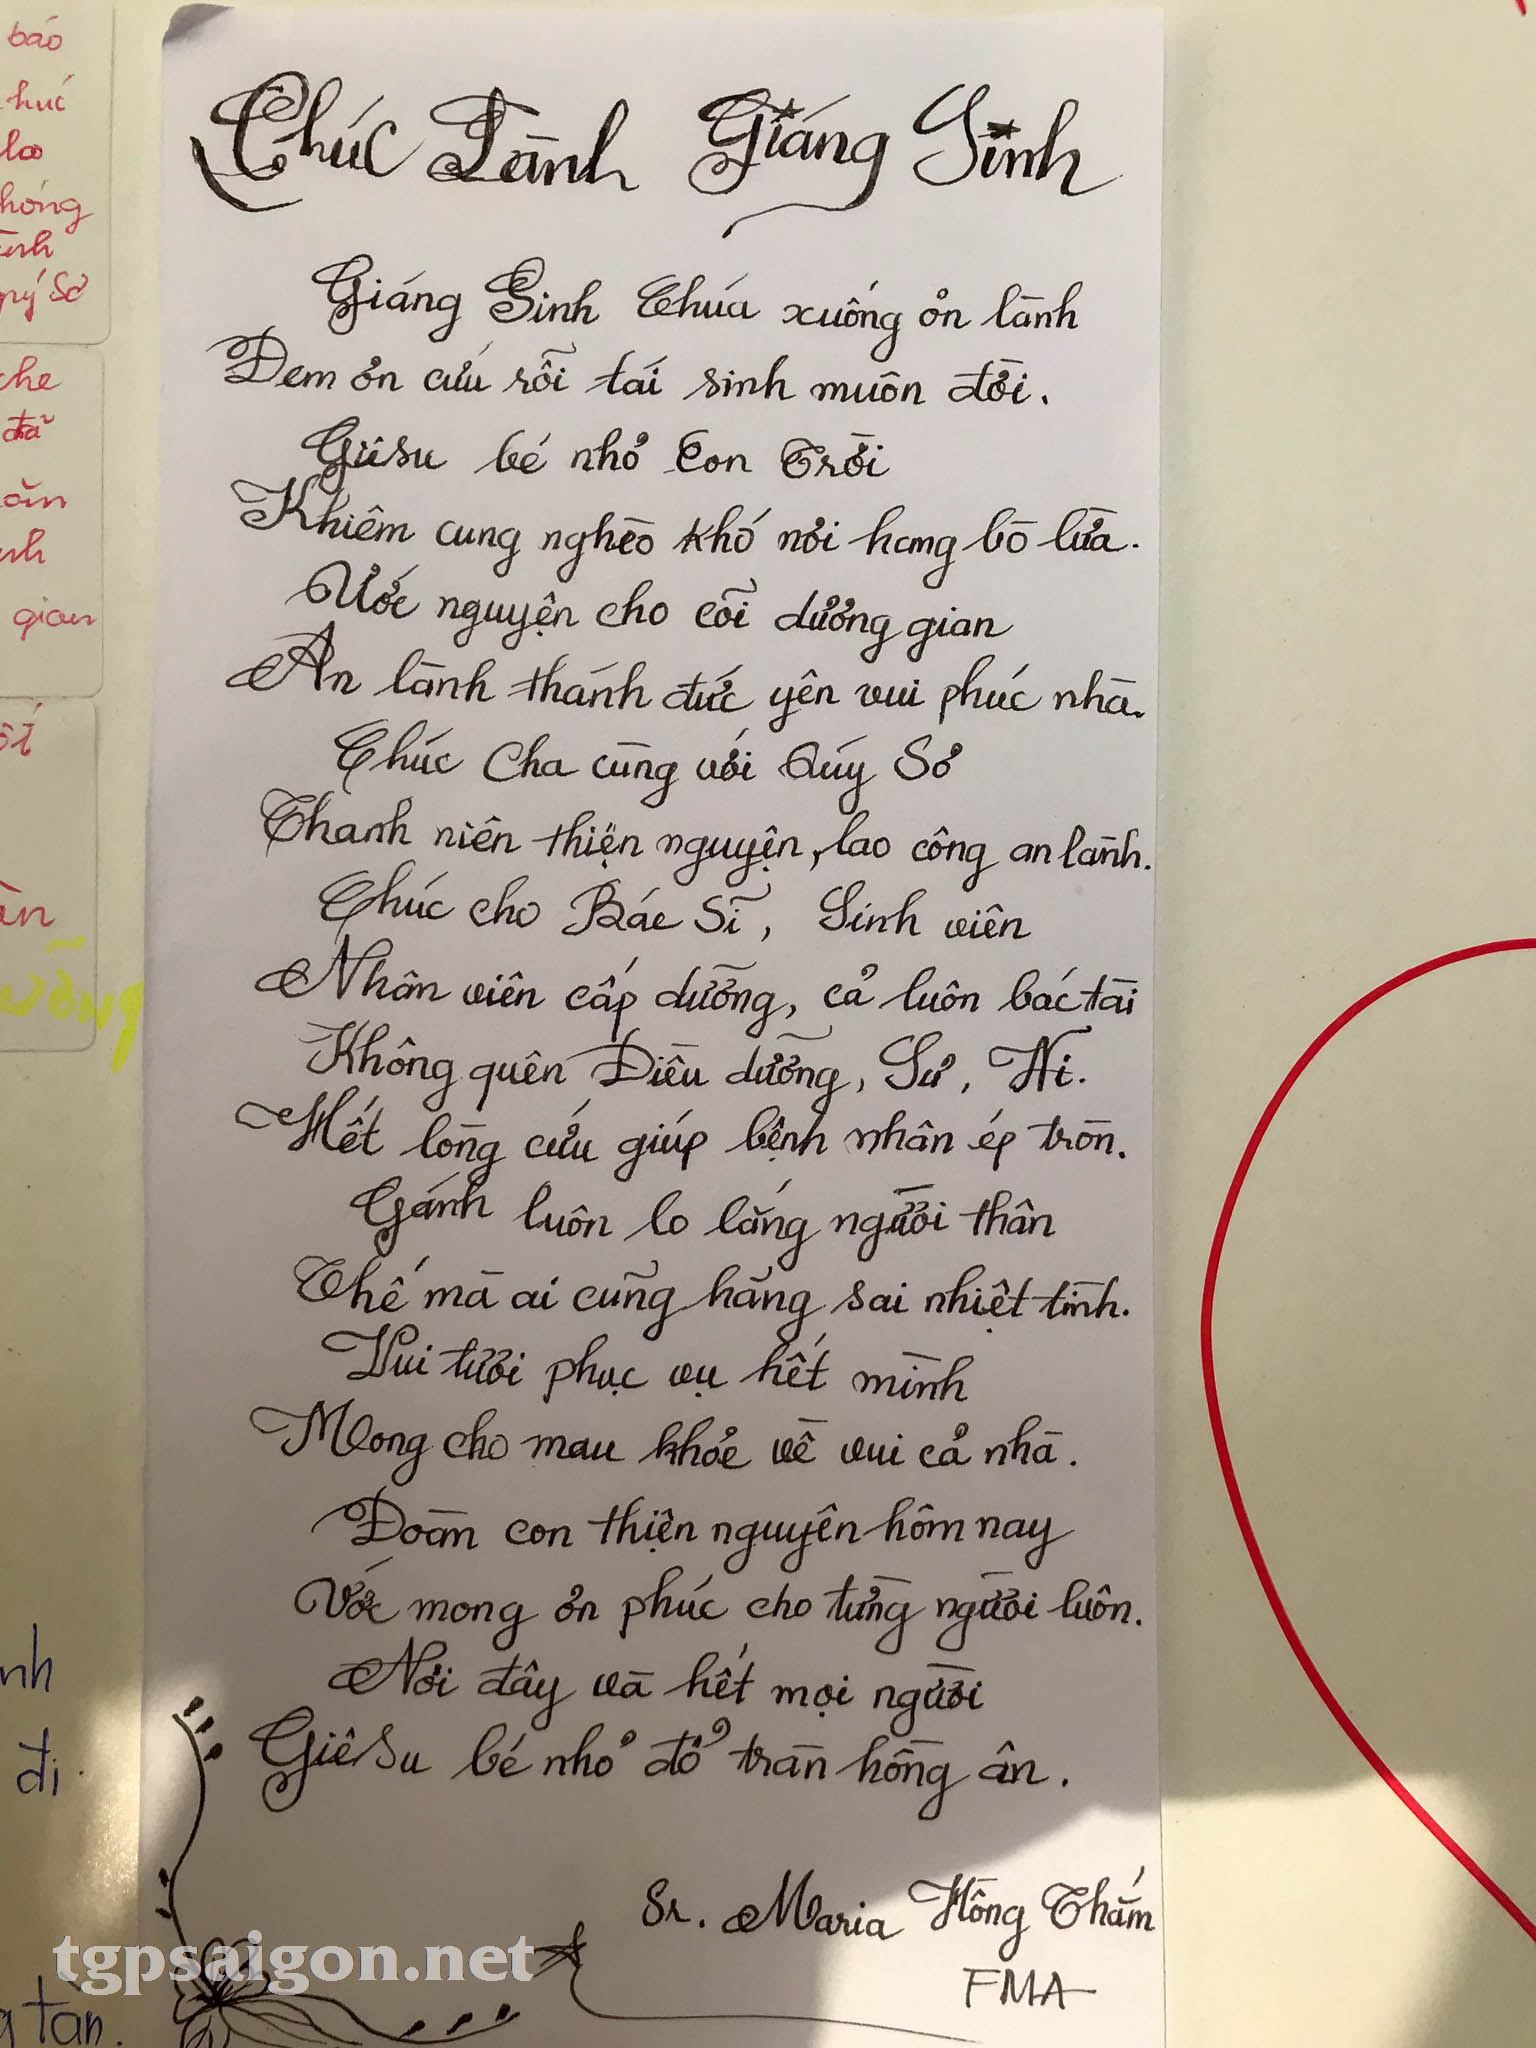 báo
húc
lao
hóng
ình
quý Sơ
che
đã
oàn
nh
gian
ốt
àn
ưỡng
nh
đi.
tàn.
Chúc Lành Giáng Sinh
Giáng Sinh Chúa xuống ơn lành
Đem ơn cứu rỗi tái sinh muôn đời.
Giêsu bé nhỏ Con Trời
Khiêm cung nghèo khó nơi hang bò lừa.
Ước nguyện cho cõi dương gian
An lành thánh đức yên vui phúc nhà.
Chúc Cha cùng với Quý Sơ
Thanh niên thiện nguyện, lao công an lành.
Chúc cho Bác Sĩ, Sinh viên
Nhân viên cấp dưỡng, cả luôn bác tài
Không quên Điều dưỡng, Sư, Ni.
Hết lòng cứu giúp bệnh nhân ép tròn.
Gánh luôn lo lắng người thân
Thế mà ai cũng hăng sai nhiệt tình.
Vui tươi phục vụ hết mình
Mong cho mau khỏe về vui cả nhà.
Đoàn con thiện nguyên hôm nay
Ước mong ơn phúc cho từng người luôn.
Nơi đây và hết mọi người
Giêsu bé nhỏ đổ tràn hồng ân.
Sr. Maria Hồng Thắm
FMA
tgpsaigon.net